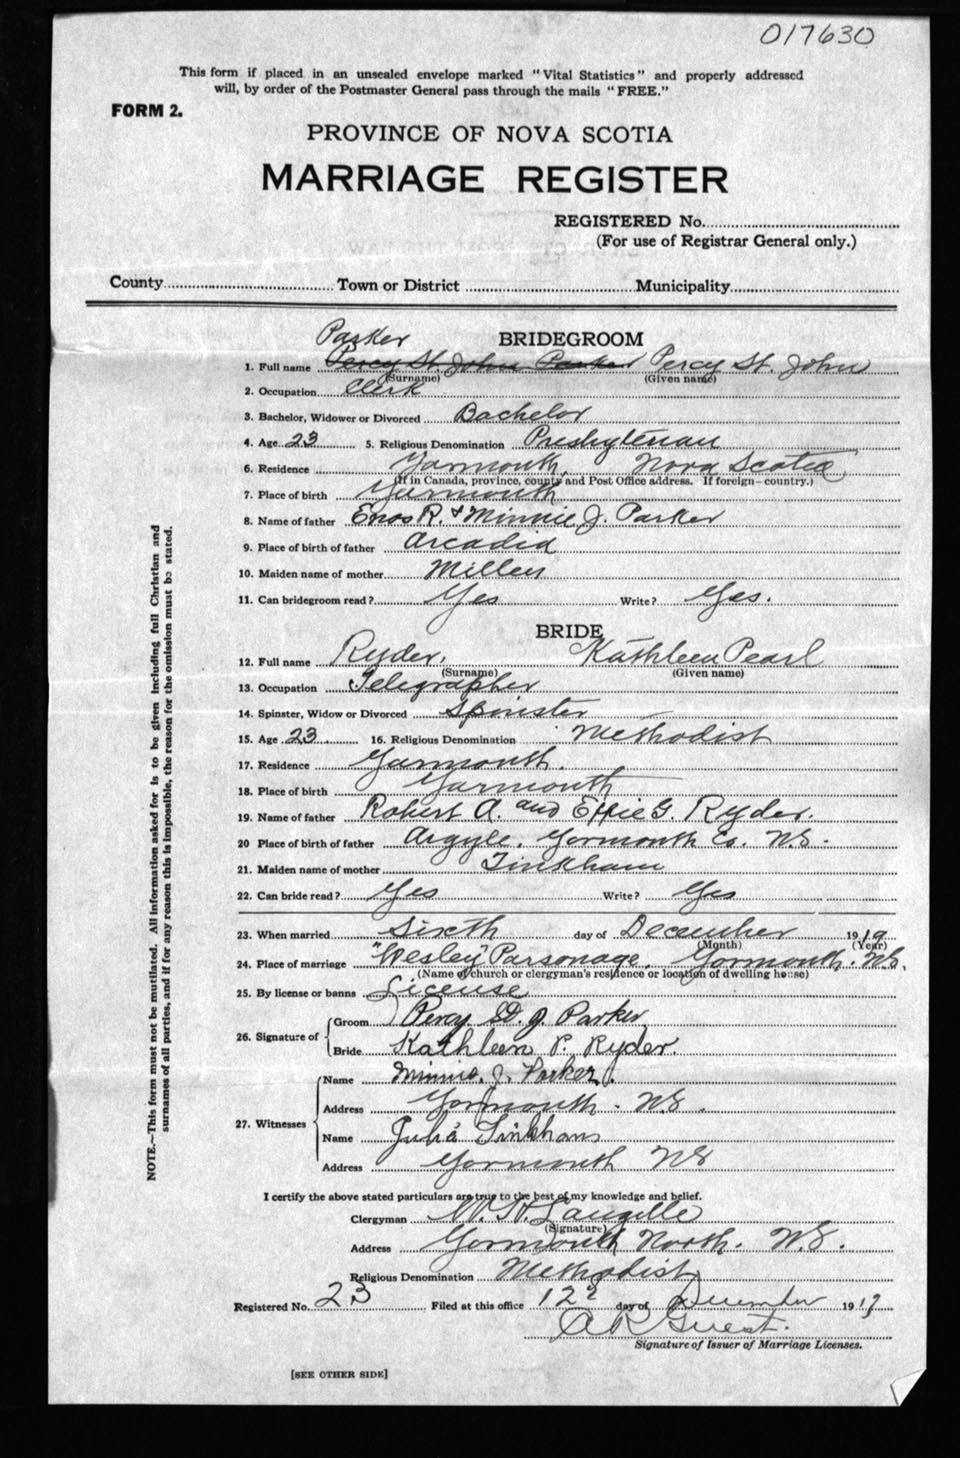 017630
This form if placed in an unsealed envelope marked "Vital Statistics" and properly addressed
will, by order of the Postmaster General pass through the mails "FREE."
FORM 2.
PROVINCE OF NOVA SCOTIA
MARRIAGE REGISTER
REGISTERED No.
(For use of Registrar General only.)
County Town or District Municipality
BRIDEGROOM
Parker
1. Full name Percy St. John Parker Percy St. John
(Surname) (Given name)
2. Occupation Clerk
3. Bachelor, Widower or Divorced Bachelor
4. Age 23 5. Religious Denomination Presbyterian
6. Residence Yarmouth, Nova Scotia
(If in Canada, province, county and Post Office address. If foreign-country.)
7. Place of birth Yarmouth
8. Name of father Enos R. & Minnie J. Parker
9. Place of birth of father Arcadia
10. Maiden name of mother
11. Can bridegroom read? Yes Write? Yes.
BRIDE
12. Full name Ryder, Kathleen Pearl
(Surname) (Given name)
13. Occupation Telegrapher
14. Spinster, Widow or Divorced Spinster
15. Age 23 16. Religious Denomination Methodist
17. Residence Yarmouth.
18. Place of birth Yarmouth
19. Name of father Robert A. and Effie G. Ryder.
20 Place of birth of father Argyle, Yarmouth Co. N.S.
21. Maiden name of mother Tinkham
22. Can bride read? Yes Write? Yes
23. When married Sixth day of December 1919
(Month) (Year)
24. Place of marriage "Wesley" Parsonage, Yarmouth. N.S.
(Name of church or clergyman's residence or location of dwelling house)
25. By license or banns License
26. Signature of Groom Percy St. J. Parker
Bride Kathleen P. Ryder.
27. Witnesses Name Minnie J. Parker.
Address Yarmouth. N.S.
Name Julia Tinkham
Address Yarmouth NS
I certify the above stated particulars are true to the best of my knowledge and belief.
Clergyman W. H. Langille
(Signature)
Address Yarmouth North. N.S.
Religious Denomination Methodist
Registered No. 23 Filed at this office 12 day of December 191
A R Guest.
Signature of Issuer of Marriage Licenses.
[SEE OTHER SIDE]
NOTE.—This form must not be mutilated. All information asked for is to be given including full Christian and
surnames of all parties, and if for any reason this is impossible, the reason for the omission must be stated.